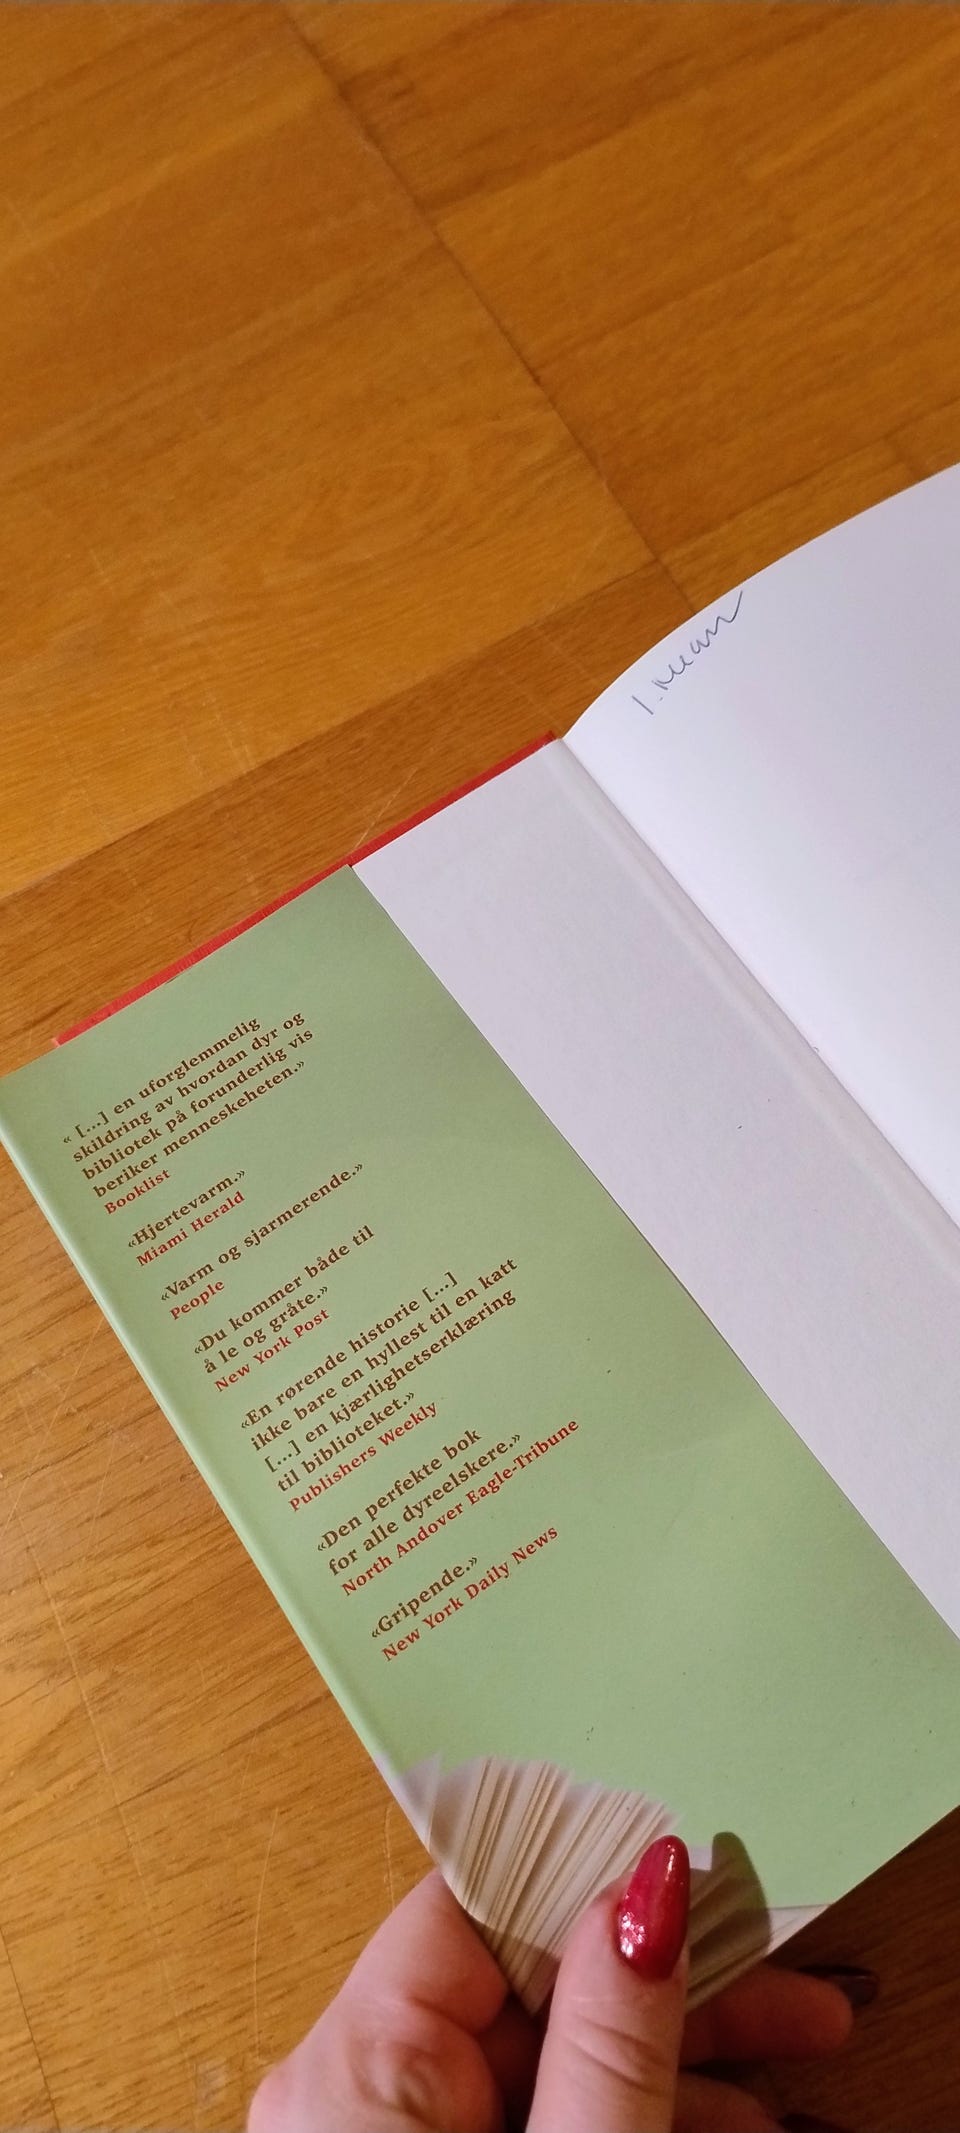 « [...] en uforglemmelig
skildring av hvordan dyr og
bibliotek på forunderlig vis
beriker menneskeheten.»
Booklist
«Hjertevarm.»
Miami Herald
«Varm og sjarmerende.»
People
«Du kommer både til
å le og gråte.»
New York Post
«En rørende historie [...]
ikke bare en hyllest til en katt
[...] en kjærlighetserklæring
til biblioteket.»
Publishers Weekly
«Den perfekte bok
for alle dyreelskere.»
North Andover Eagle-Tribune
«Gripende.»
New York Daily News